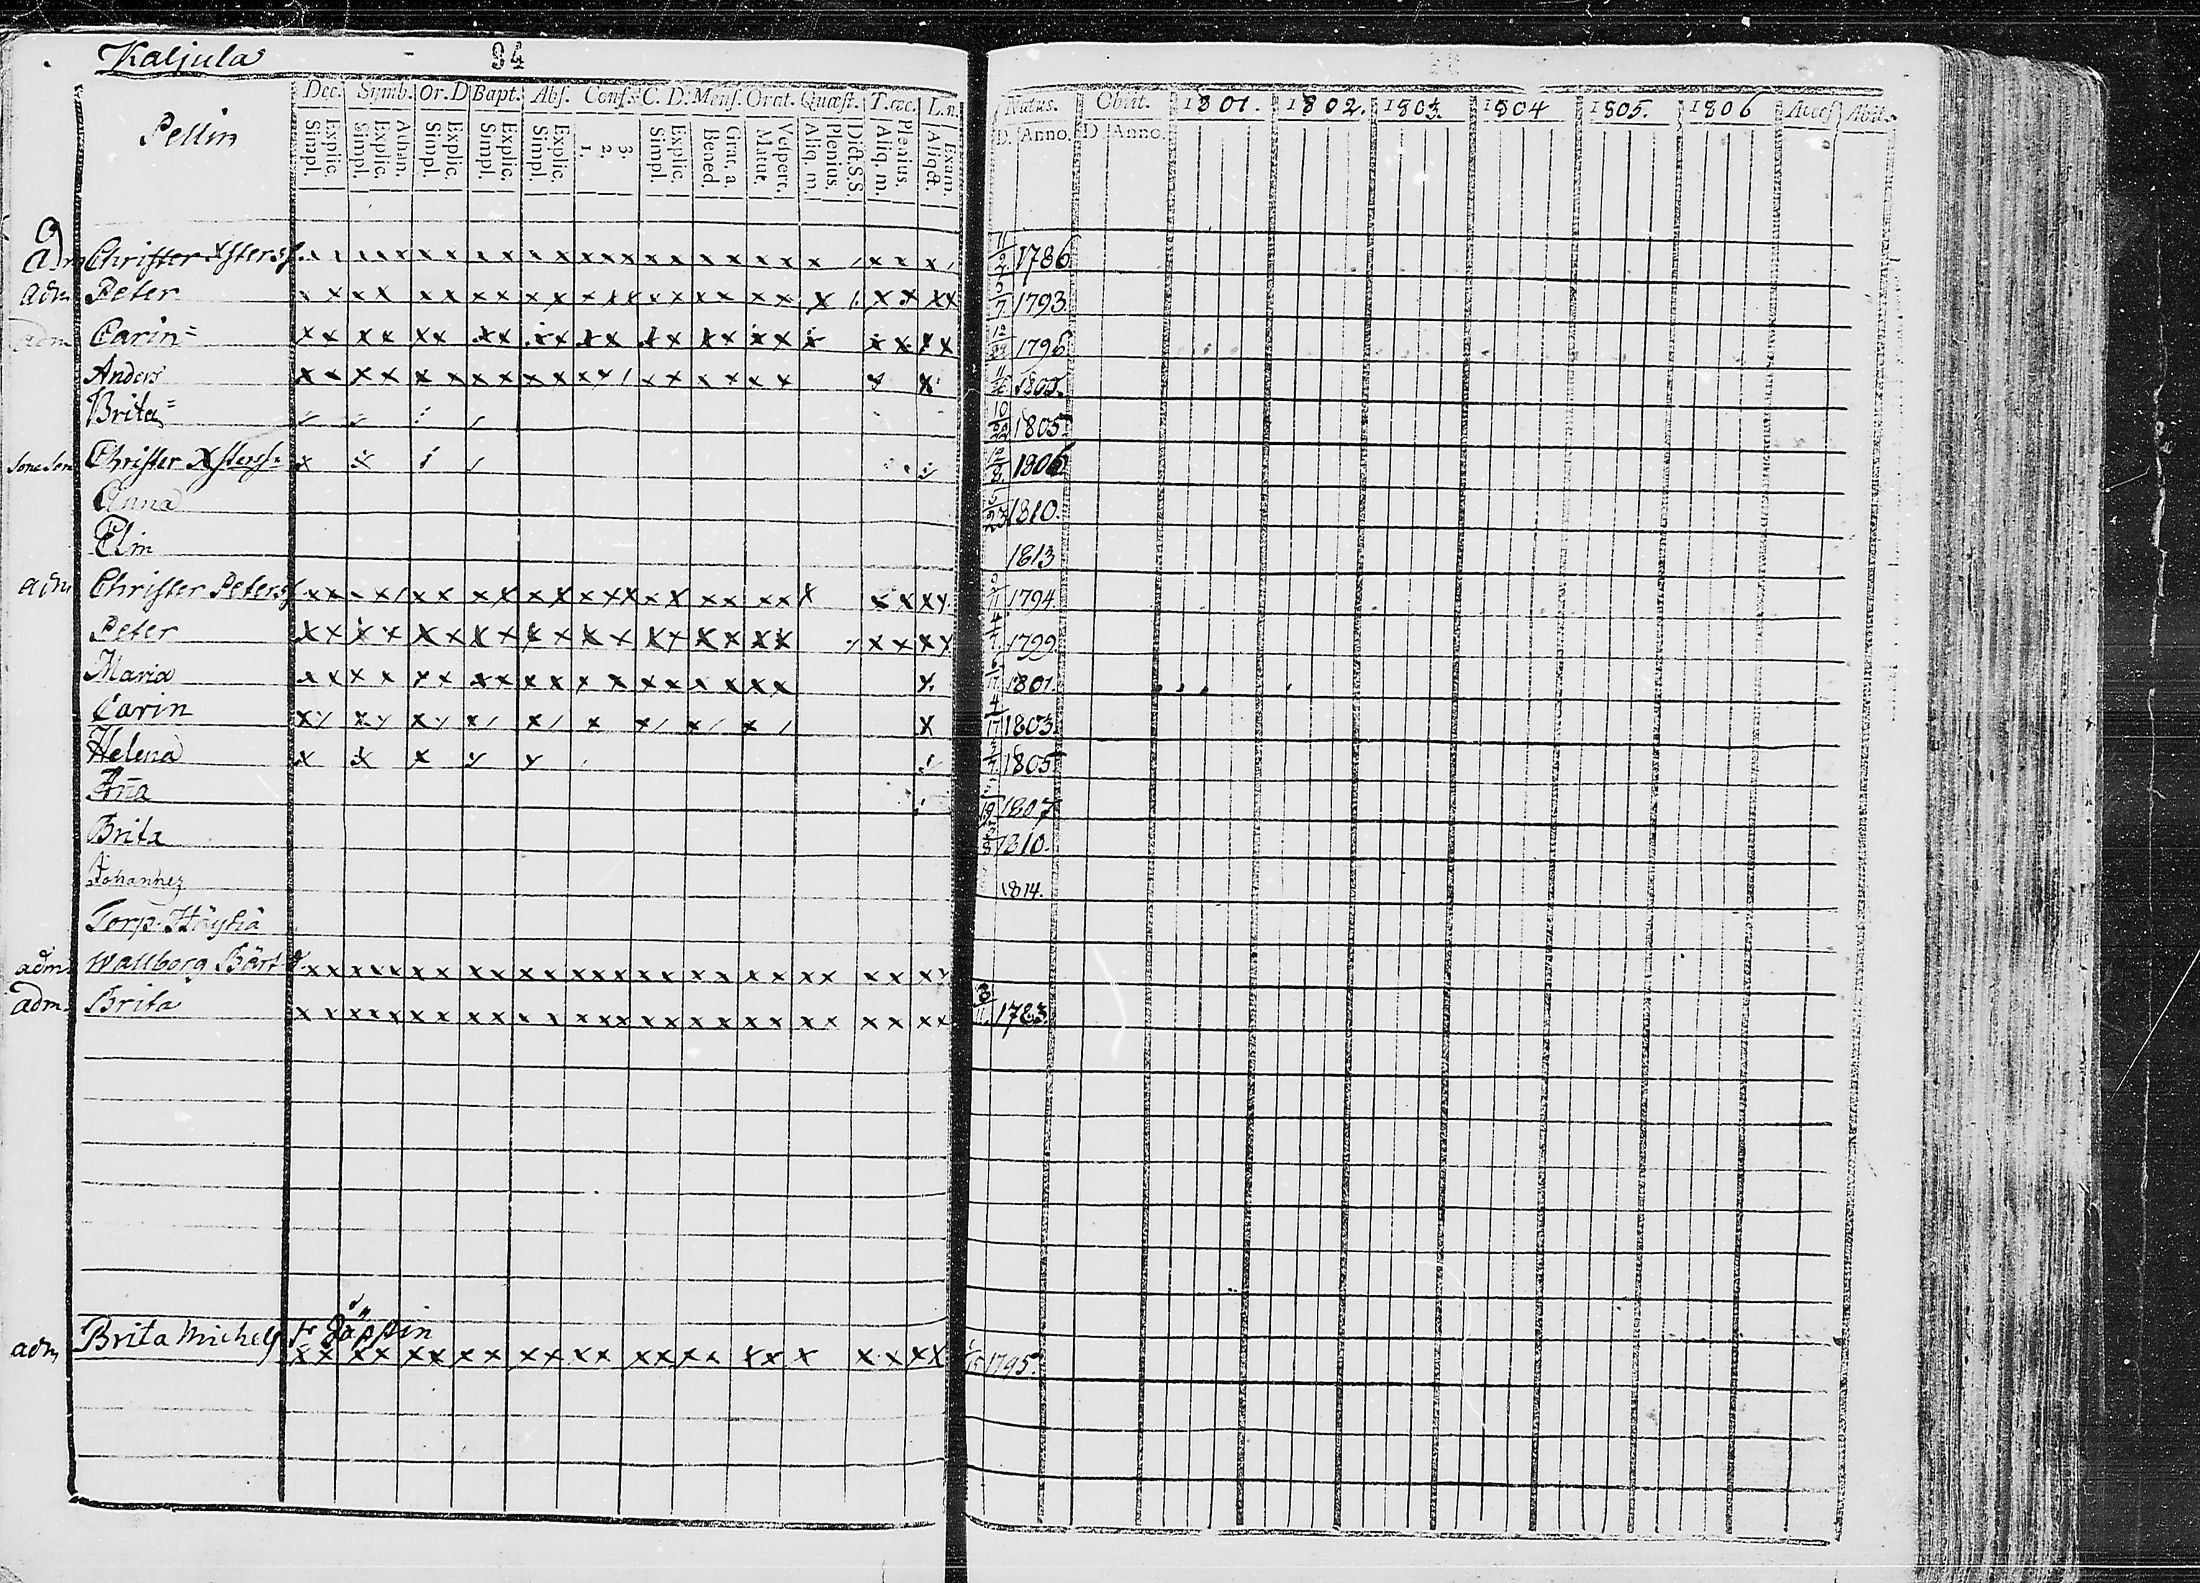 Kaljula 94
Pellin
Dec. Symb. Or. D Bapt. Abs. Confs. C. D. Mens. Orat. Quæst. T. œc. L. n.
Simpl. Explic. Simpl. Explic. Athan. Simpl. Explic. Simpl. Explic. Simpl. Explic. 1. 2. 3. Simpl. Explic. Bened. Grat. a. Matut. Vespert. Aliq. m. Plenius. Dict. S. S. Aliq. m. Plenius. Aliqd. Exam.
Natus. Obiit. 1801. 1802. 1803. 1804 1805. 1806 Access. Abit.
D. Anno. D Anno.
adm Christer Xsterss. 1786
adm Peter 9/7 1793.
adm Carin= 1796
Anders
Brita= 1805
Christer Xsterss= 1806
Anna 1810.
Elin 1813
adm Christer Peterss 1794.
Peter 1799
Maria 1801.
Carin 1803.
Helena 1805
Aña 1807
Brita 1810.
Johannes 1814.
Torp. Häyhä
adm. Wallborg Bärt d.
adm. Brita 1783.
adm Brita Michels fr Jäppin
1795.